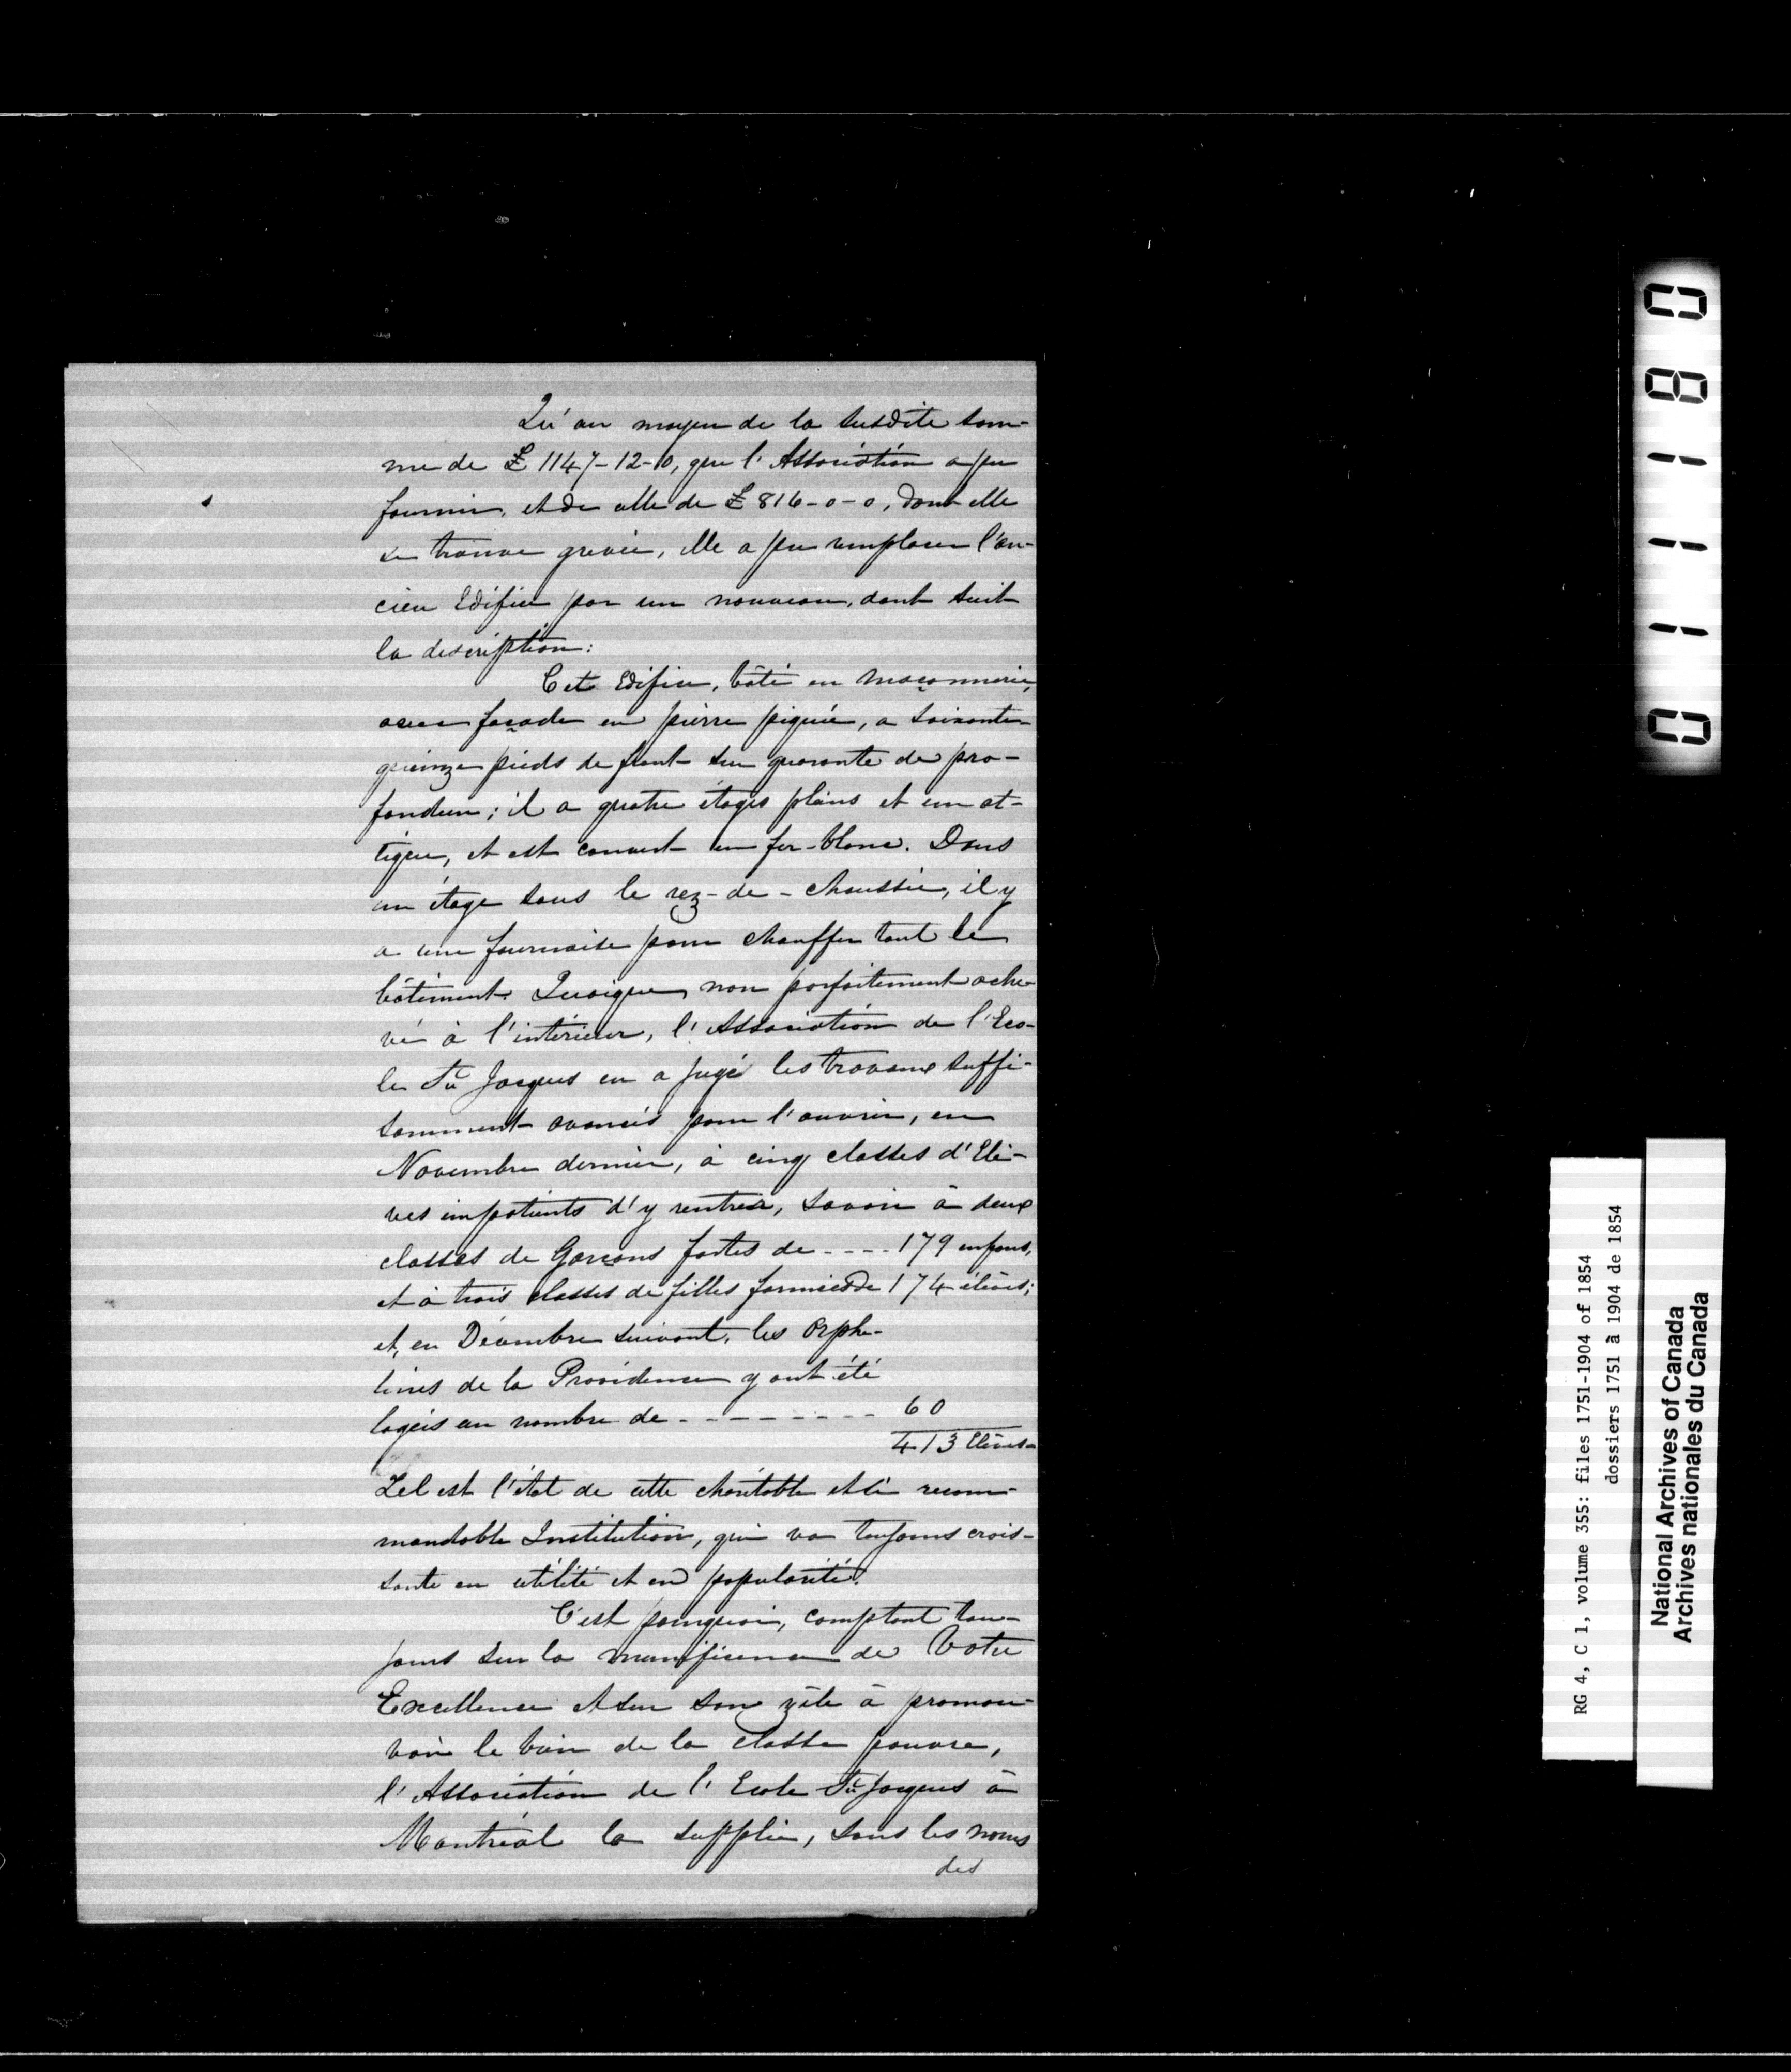 Qu'au moyen de la susdite som-
me de £ 1147-12-10, que l'Association a pu
fournir, et de celle de £ 816-0-0, dont elle
se trouve grevée, elle a pu remplacer l'an-
cien Edifice par un nouveau, dont suit
la description:
Cet Edifice, bâti en maçonnerie,
avec façade en pierre piquée, a soixante-
quinze pieds de front sur quarante de pro-
fondeur; il a quatre étages pleins et un at-
tique, et est couvert en fer-blanc. Dans
un étage sous le rez-de-chaussée, il y
a une fournaise pour chauffer tout le
bâtiment. Quoique non parfaitement ache-
vé à l'intérieur, l'Association de l'Eco-
le St. Jacques en a jugé les travaux suffi-
samment avancés pour l'ouvrir, en
Novembre dernier, à cinq classes d'Elè-
ves impatients d'y rentrer, savoir à deux
classes de Garçons fortes de - - - - 179 enfans,
et à trois classes de filles formées de 174 élèves;
et, en Décembre suivant, les Orphe-
lines de la Providence y ont été
logées au nombre de - - - - - - - - 60
413 Elèves-
Tel est l'état de cette charitable et si recom-
mandable Institution, qui va toujours crois-
sante en utilité et en popularité.
C'est pourquoi, comptant tou-
jours sur la munificence de Votre
Excellence et sur son zèle à promou-
voir le bien de la classe pauvre,
l'Association de l'Ecole St. Jacques à
Montréal la supplie, sous les noms
des
011180
RG 4, C 1, volume 355: files 1751-1904 of 1854
dossiers 1751 à 1904 de 1854
National Archives of Canada
Archives nationales du Canada